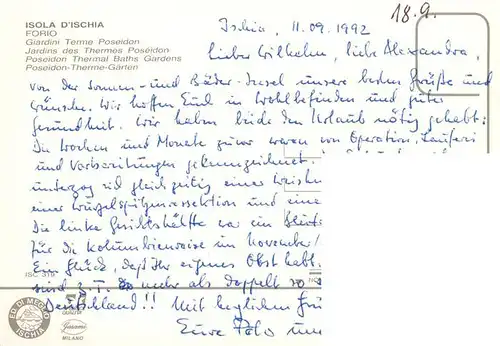 18.9.
ISOLA D'ISCHIA
FORIO
Giardini Terme Poseidon
Jardins des Thermes Poséidon
Poseidon Thermal Baths Gardens
Poseidon-Therme-Gärten
Ischia, 11.09.1992
Lieber Wilhelm, liebe Alexandra,
von der Sonnen- und Bäder-Insel unsere besten Grüße und
Wünsche. Wir hoffen, Euch in Wohlbefinden und guter
Gesundheit. Wir haben beide den Urlaub nötig gehabt:
Die Wochen und Monate zuvor waren von Operation,
und Vorbereitungen gekennzeichnet.
unterzog sich gleichzeitig einer
einer Wurzelspitzenresektion und eine
Die linke Gesichtshälfte war ein
für die Kolumbienreise im November!
Ein Glück, daß Ihr eigenes Obst habt.
sind z.T. mehr als doppelt so
Deutschland!! Mit herzlichen Grü
Eure Polo
ISC 319
ED. DI MEGLIO
ISCHIA
MILANO